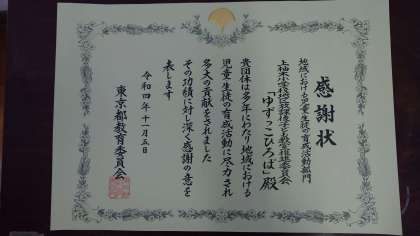 感謝状
地域における児童・生徒の育成活動部門
上柚木小学校地区放課後子ども教室推進委員会
「ゆずっこひろば」殿
貴団体は多年にわたり地域における
児童・生徒の育成活動に尽力され
多大の貢献をされました
その功績に対し深く感謝の意を
表します
令和四年十一月五日
東京都教育委員会